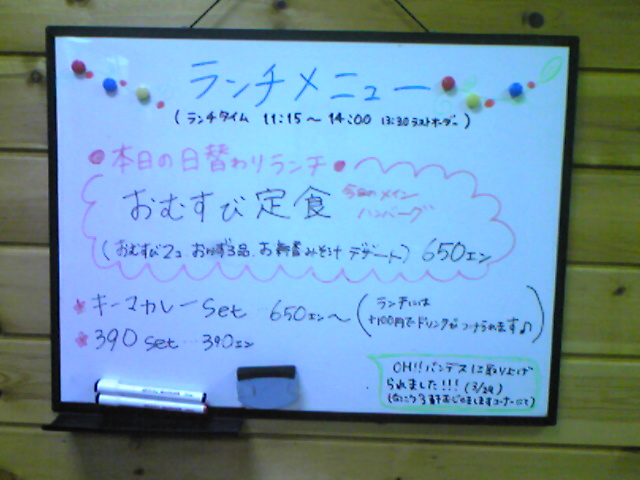 ランチメニュー
(ランチタイム 11:15〜14:00 13:30ラストオーダー)
本日の日替わりランチ
おむすび定食 今日のメイン
ハンバーグ
(おむすび2コ おかず3品、お新香 みそ汁 デザート) 650エン
キーマカレーSet 650エン〜 (ランチには
+100円でドリンクがつけられます♪)
390 set … 390エン
OH!!バンデスに取り上げ
られました!!! (3/29)
おじゃましますコーナーにて)